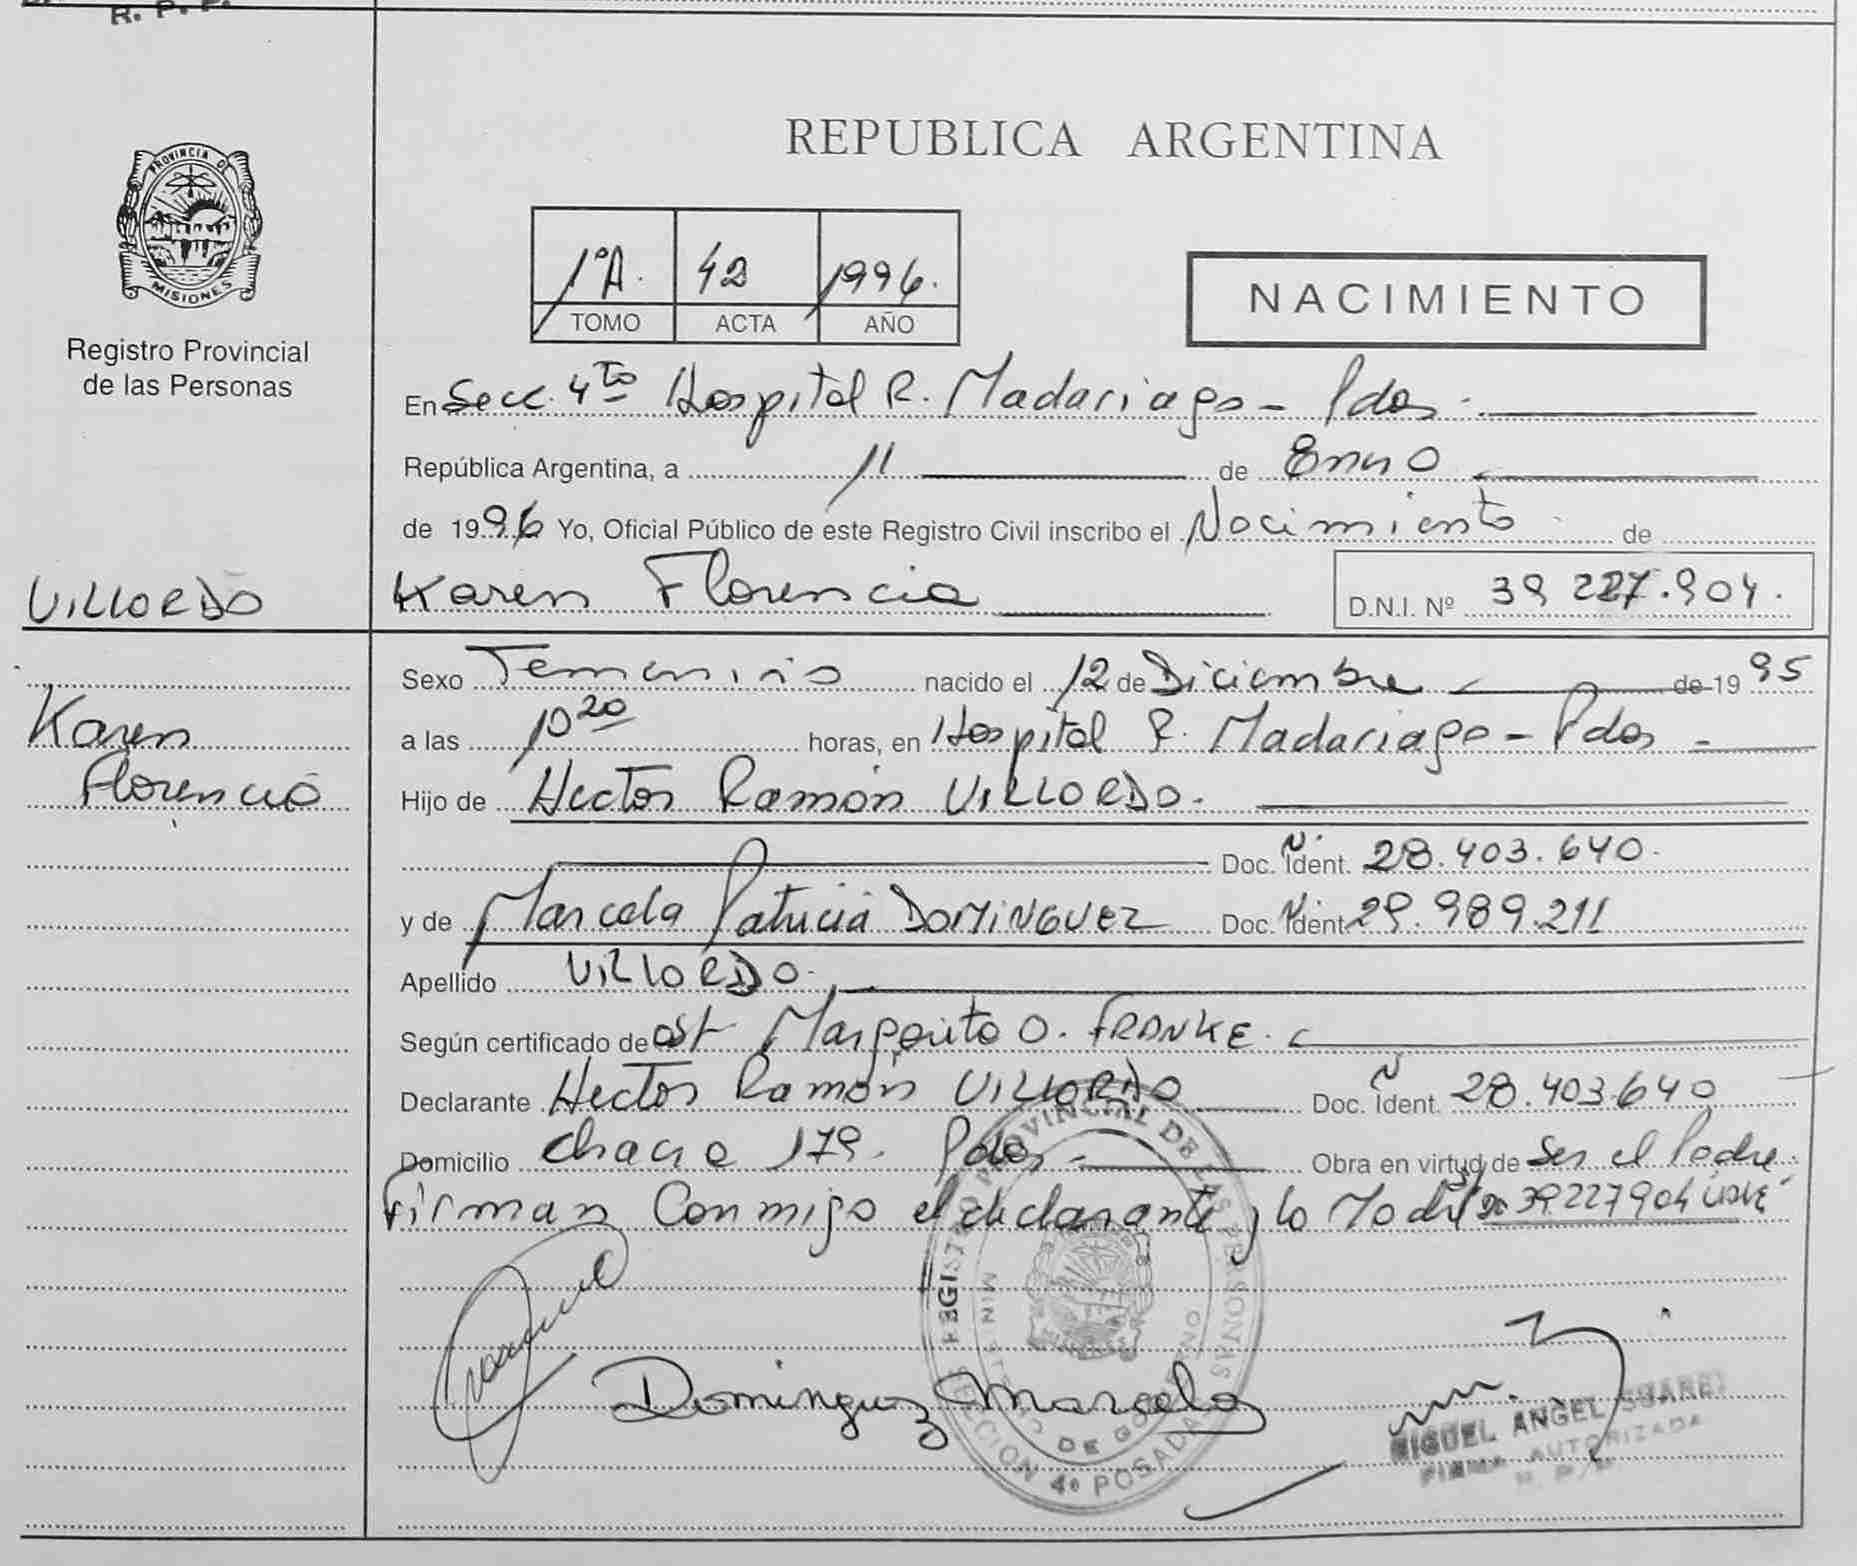 R. P. P.
PROVINCIA DE
MISIONES
Registro Provincial
de las Personas
VILLORDO
Karen
Florencia
REPUBLICA ARGENTINA
1ºA. 42 1996.
TOMO ACTA AÑO
NACIMIENTO
En Secc. 4to Hospital R. Madariaga - Pdas.
República Argentina, a 11 de Enero
de 1996 Yo, Oficial Público de este Registro Civil inscribo el Nacimiento de
Karen Florencia D.N.I. Nº 39 227.904.
Sexo Femenino nacido el 12 de Diciembre de 1995
a las 10 20 horas, en Hospital R. Madariaga - Pdas -
Hijo de Hector Ramón VILLORDO.
Doc. Ident. 28.403.640.
y de Marcela Patricia DOMINGUEZ Doc. Ident. 29.989.211
Apellido VILLORDO.
Según certificado de Ost Margarita O. FRANKE.
Declarante Hector Ramón VILLORDO Doc. Ident. 28.403.640
Domicilio Chacra 179. Pdas. Obra en virtud de Ser el Padre.
Firman Conmigo el declarante y la Madre 39227904 VALE
REGISTRO PROVINCIAL DE LAS PERSONAS
MINISTERIO DE GOBIERNO
SECCION 4º POSADAS
Dominguez Marcela
MIGUEL ANGEL SUAREZ
FIRMA AUTORIZADA
R. P. P.